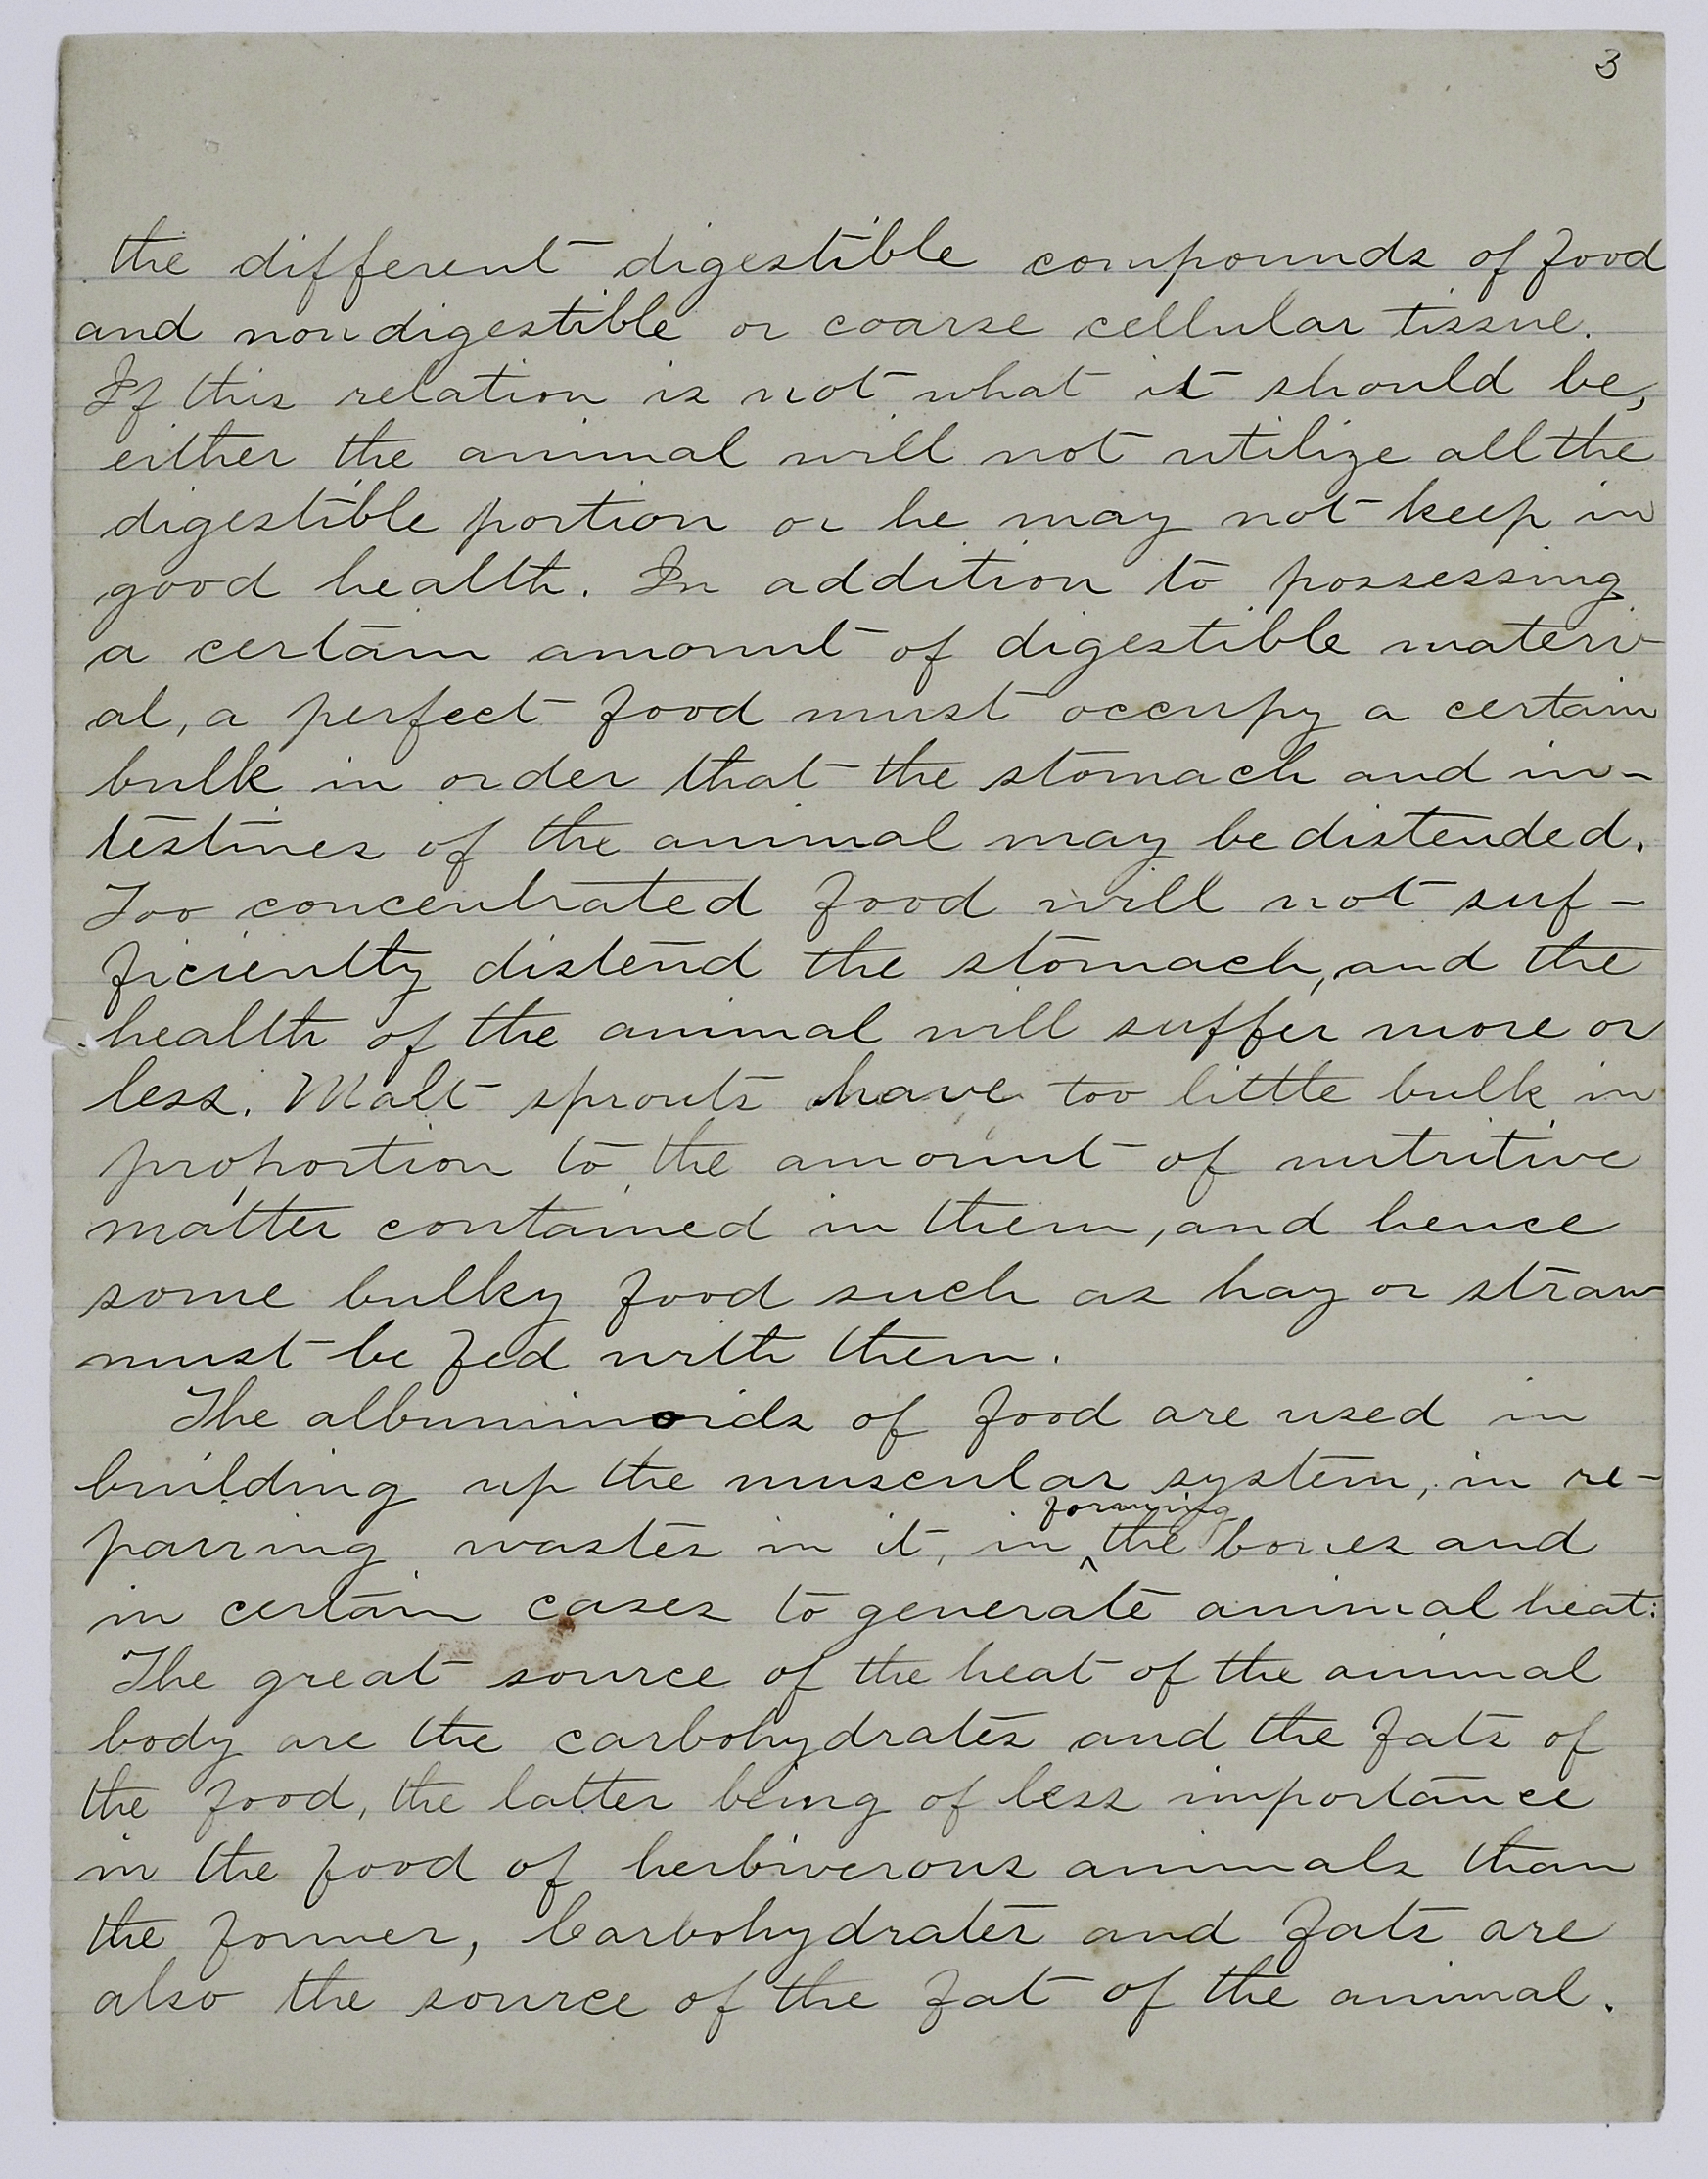 3
the different digestible compounds of food
and nondigestible or coarse cellular tissue.
If this relation is not what it should be,
either the animal will not utilize all the
digestible portion or he may not keep in
good health. In addition to possessing
a certain amount of digestible materi-
al, a perfect food must occupy a certain
bulk in order that the stomach and in-
testines of the animal may be distended.
Too concentrated food will not suf-
ficiently distend the stomach, and the
health of the animal will suffer more or
less. Malt sprouts have too little bulk in
proportion to the amount of nutritive
matter contained in them, and hence
some bulky food such as hay or straw
must be fed with them.
The albuminoids of food are used in
building up the muscular system, in re-
pairing wastes in it, in ^forming the bones and
in certain cases to generate animal heat:
The great source of the heat of the animal
body are the carbohydrates and the fats of
the food, the latter being of less importance
in the food of herbiverous animals than
the former, Carbohydrates and fats are
also the source of the fat of the animal.